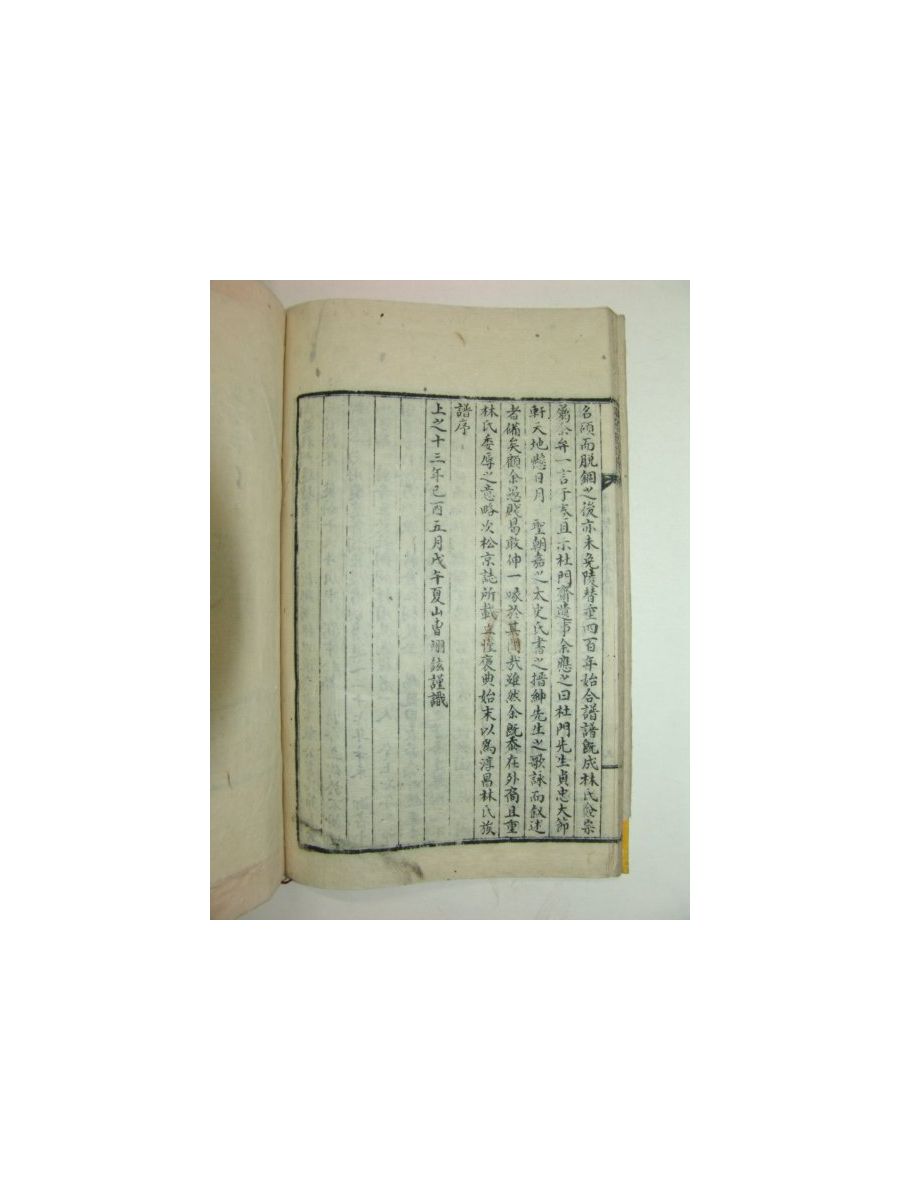 名碩而脫錮之後亦未免陵替垂四百年始合譜譜旣成林氏僉宗
余弁一言于末且示杜門齋遺事余應之曰杜門先生貞忠大節
軒天地懸日月 聖朝嘉之太史氏書之搢紳先生之歌詠而叙述
者備矣顧余愚賤曷敢伸一喙於其間哉雖然余旣忝在外裔且重
林氏委辱之意略次松京誌所載褒典始末以爲淳昌林氏族
譜序
上之十三年己酉五月戊午夏山曺翊鉉謹識